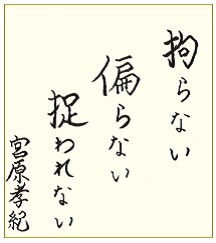 拘らない
偏らない
捉われない
宮原孝紀